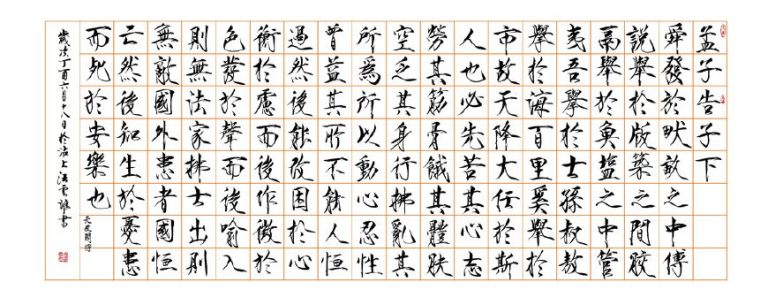 孟子告子下
舜發於畎畝之中傅
說舉於版築之間膠
鬲舉於魚塩之中管
夷吾舉於士孫叔敖
舉於海百里奚舉於
市故天降大任於斯
人也必先苦其心志
勞其筋骨餓其體肤
空乏其身行拂亂其
所爲所以動心忍性
曾益其所不能人恒
過然後能改困於心
衡於慮而後作徵於
色發於聲而後喻入
則無法家拂士出則
無敵國外患者國恒
亡然後知生於憂患
而死於安樂也
歲次丁酉六月十八日於滬上汪雄書